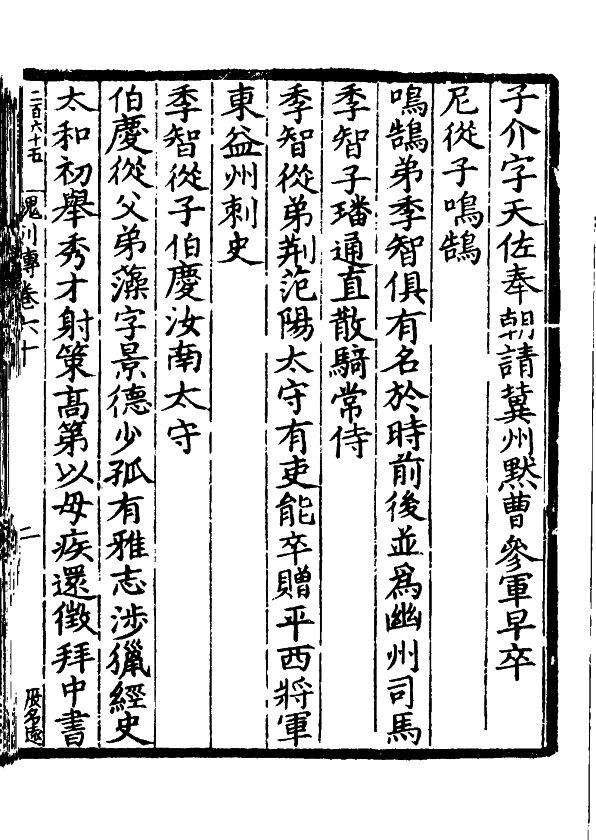 子介字天佐奉朝請冀州默曹參軍早卒
尼從子鳴鵠
鳴鵠弟季智俱有名於時前後並爲幽州司馬
季智子璠通直散騎常侍
季智從弟荆范陽太守有吏能卒贈平西將軍
東益州刺史
季智從子伯慶汝南太守
伯慶從父弟藻字景德少孤有雅志涉獵經史
太和初舉秀才射策高第以母疾還徵拜中書
二百六十五
傳卷六十
二